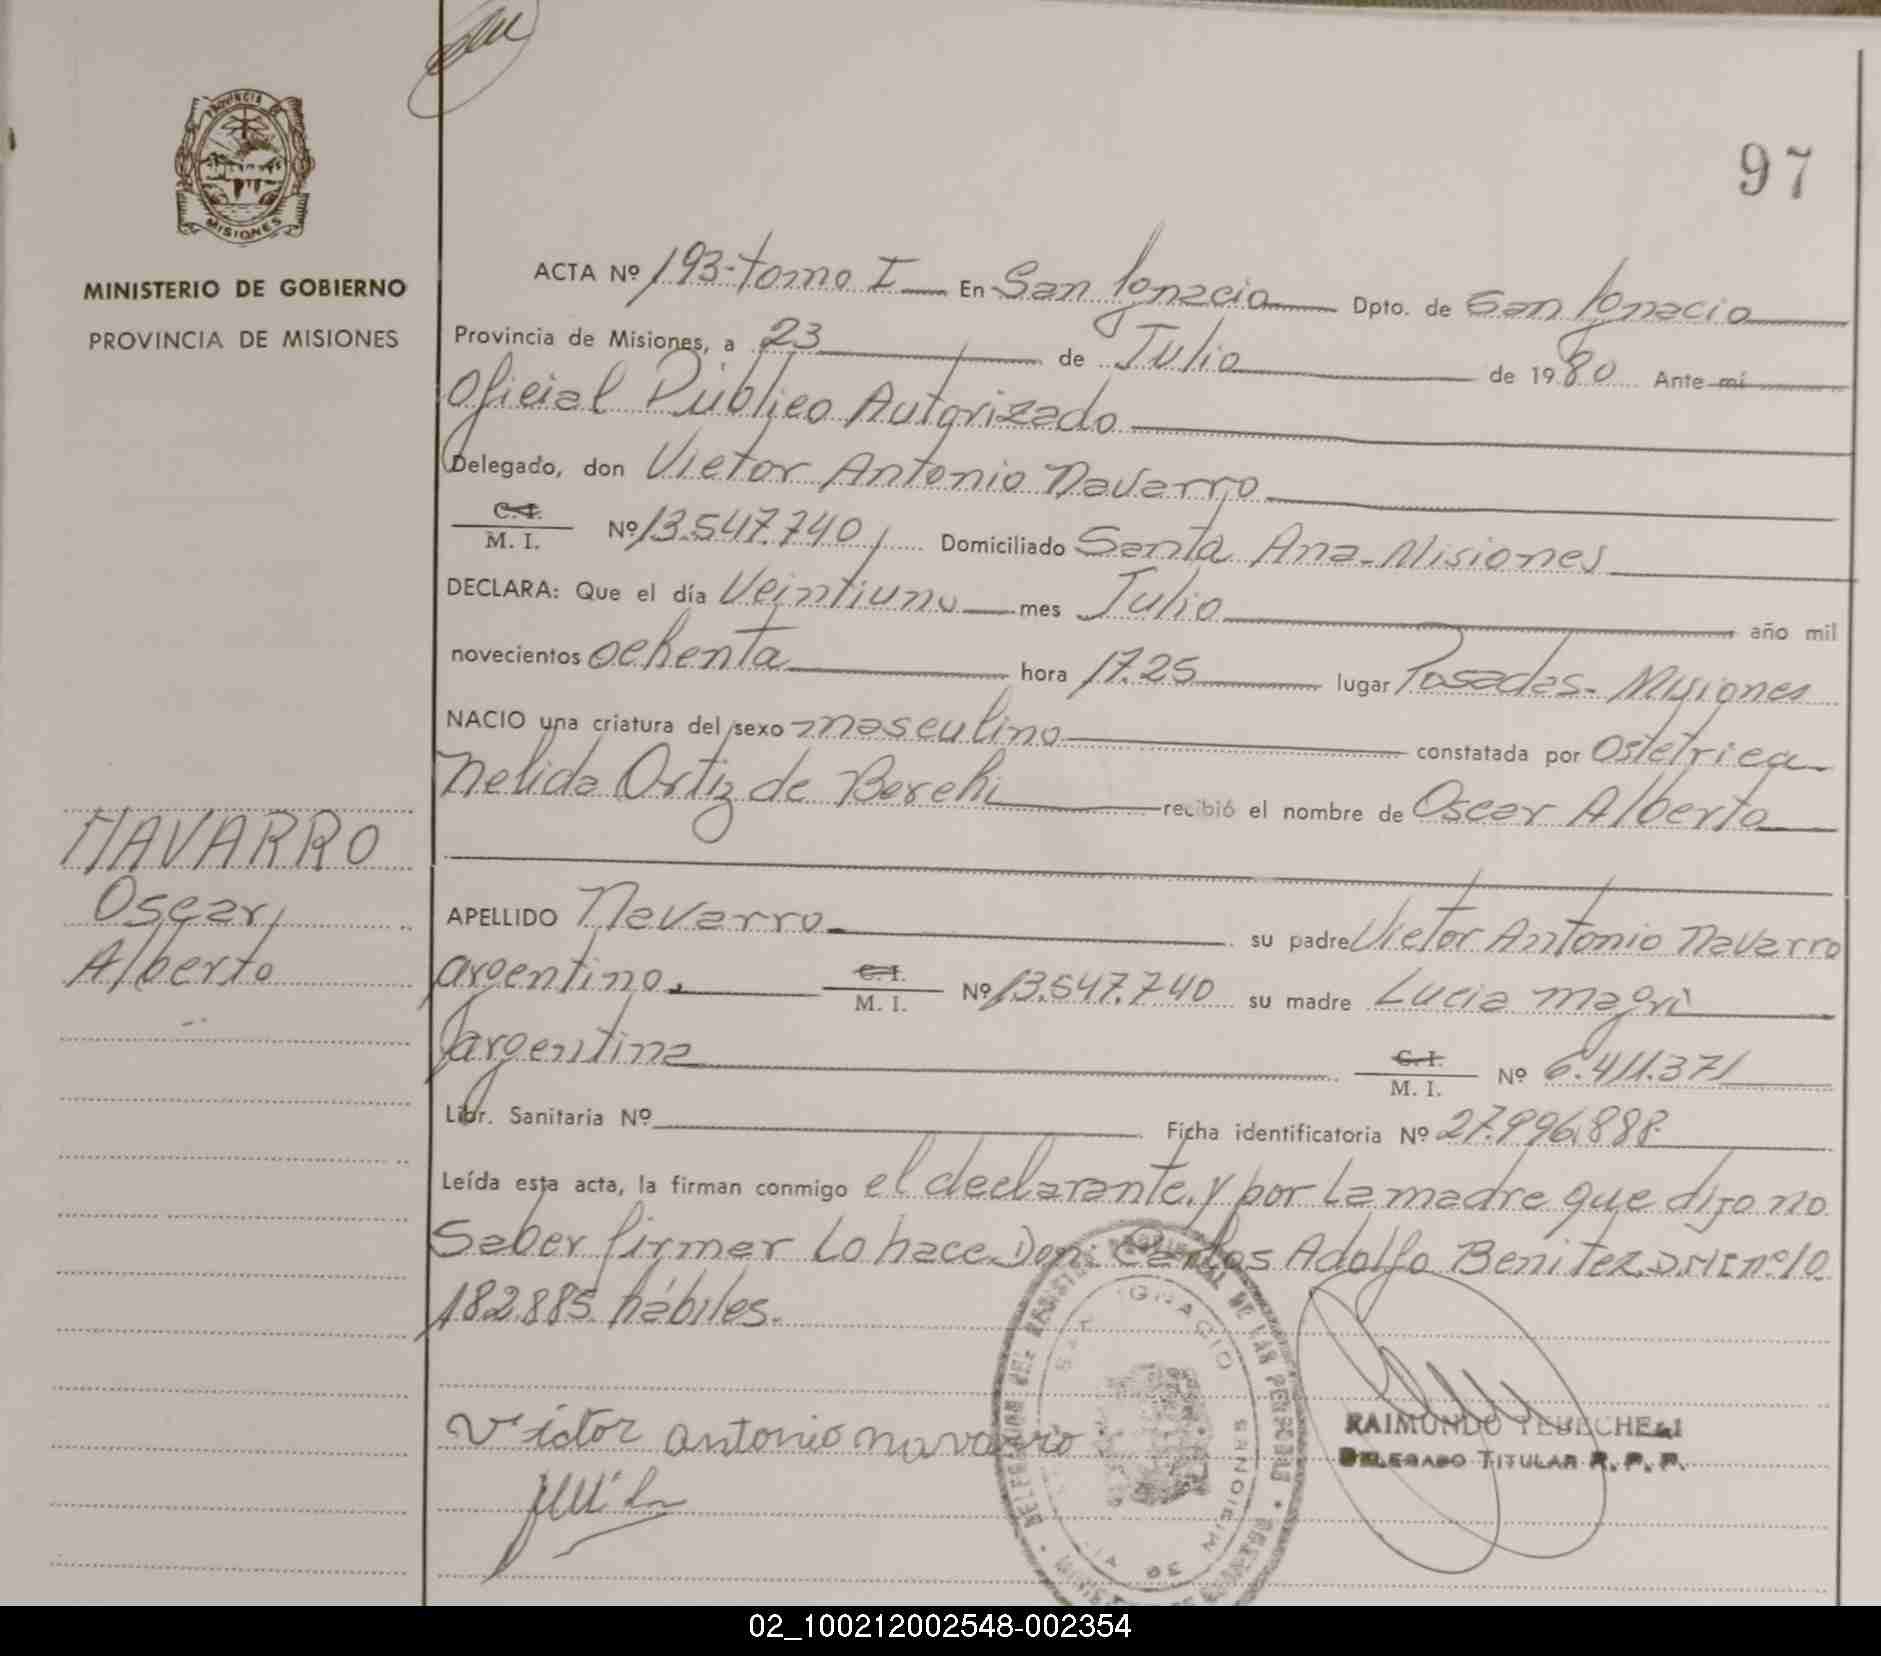 97
PROVINCIA DE
MISIONES
MINISTERIO DE GOBIERNO
PROVINCIA DE MISIONES
ACTA Nº 193-tomo I En San Ignacio Dpto. de San Ignacio
Provincia de Misiones, a 23 de Julio de 1980 Ante mí
Oficial Público Autorizado
Delegado, don Victor Antonio Navarro
C.I.
M. I. Nº 13.547.740 Domiciliado Santa Ana-Misiones
DECLARA: Que el día Veintiuno mes Julio año mil
novecientos ochenta hora 17.25 lugar Posadas-Misiones
NACIO una criatura del sexo masculino constatada por Ostetrica
Nelida Ortiz de recibió el nombre de Oscar Alberto
NAVARRO
Oscar
Alberto
APELLIDO Navarro su padre Victor Antonio Navarro
argentino, C.I.
M. I. Nº 13.547.740 su madre Lucia Magri
argentina C.I.
M. I. Nº 6.411.371
Libr. Sanitaria Nº Ficha identificatoria Nº 27.996.888
Leída esta acta, la firman conmigo el declarante, y por la madre que dijo no
saber firmar lo hace Don Carlos Adolfo Benitez D.N.I nº 10.
182.885 hábiles.
Victor antonio navarro
DELEGACION DEL REGISTRO PROVINCIAL DE LAS PERSONAS
SAN IGNACIO
MISIONES
RAIMUNDO
DELEGADO TITULAR R. P. P.
02_100212002548-002354